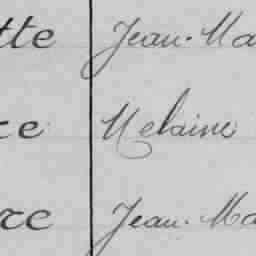 tte Jean-Ma
ce Melaine
re Jean-Ma